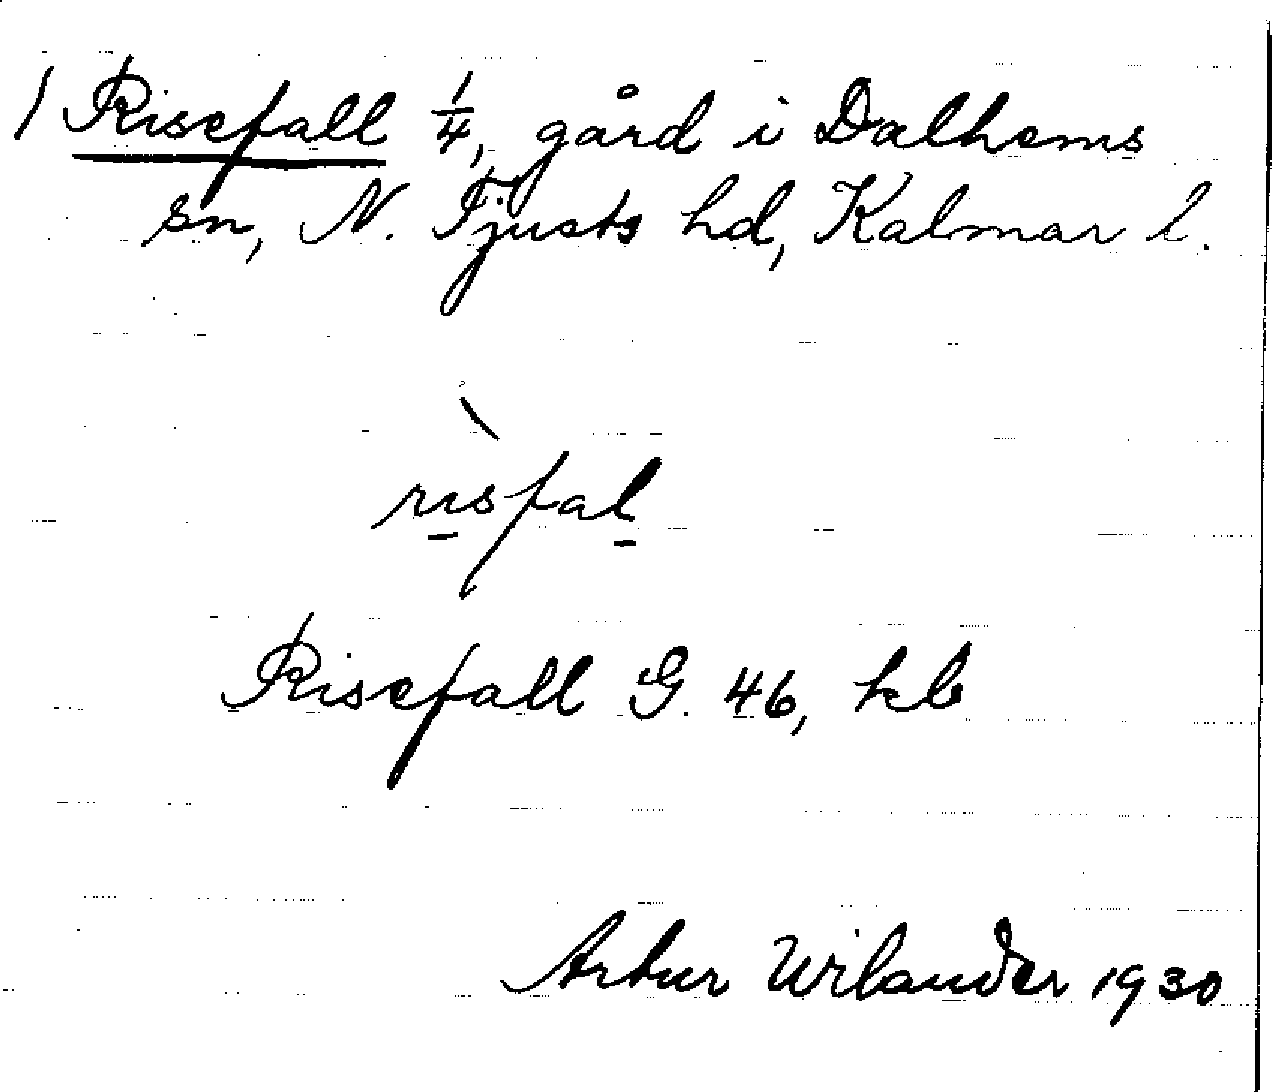 1 Risefall 1/4, gård i Dalhems
sn, N. Tjusts hd, Kalmar l.
risfal
Risefall G. 46, kb
Artur Wilander 1930